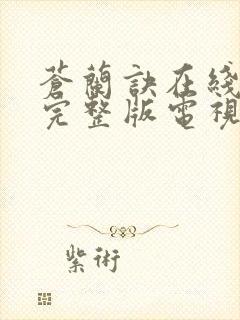 蒼蘭訣在綫
完整版電視
紫術